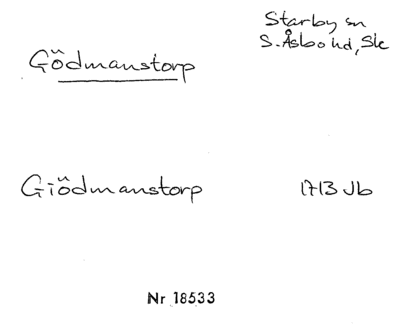 Starby sn
Gödmanstorp
S. Åsbo hd, Sk
Giödmanstorp 1713 Jb
Nr 18533